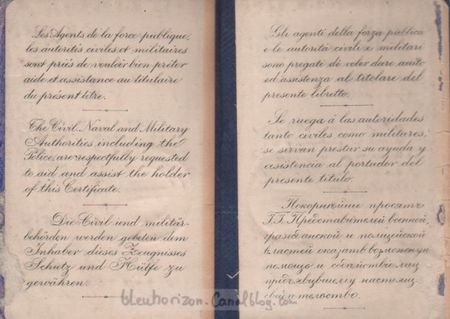 Les Agents de la force publique,
les autorités civiles et militaires
sont priés de vouloir bien prêter
aide et assistance au titulaire
du présent titre.
The Civil, Naval and Military
Authorities including the
Police, are respectfully requested
to aid and assist the holder
of this Certificate.
Die Civil und militär-
behörden werden gebeten dem
Inhaber dieses Zeugnisses
Schutz und Hülfe zu
gewähren.
Gli agenti della forza publica
e le autorità civili e militari
sono pregate di voler dare aiuto
ed assistenza al titolare del
presente libretto.
Se ruega á las autoridades
tanto civiles como militares,
se sirvan prestar su ayuda y
asistencia al portador del
presente titulo.
Покорнѣйше просятъ
Г.Г. Представителей военной,
гражданской и полицейской
властей оказать возможную
помощь и содѣйствіе лицу
предъявившему настоящее
свидѣтельство.
bleuhorizon.Canalblog.com